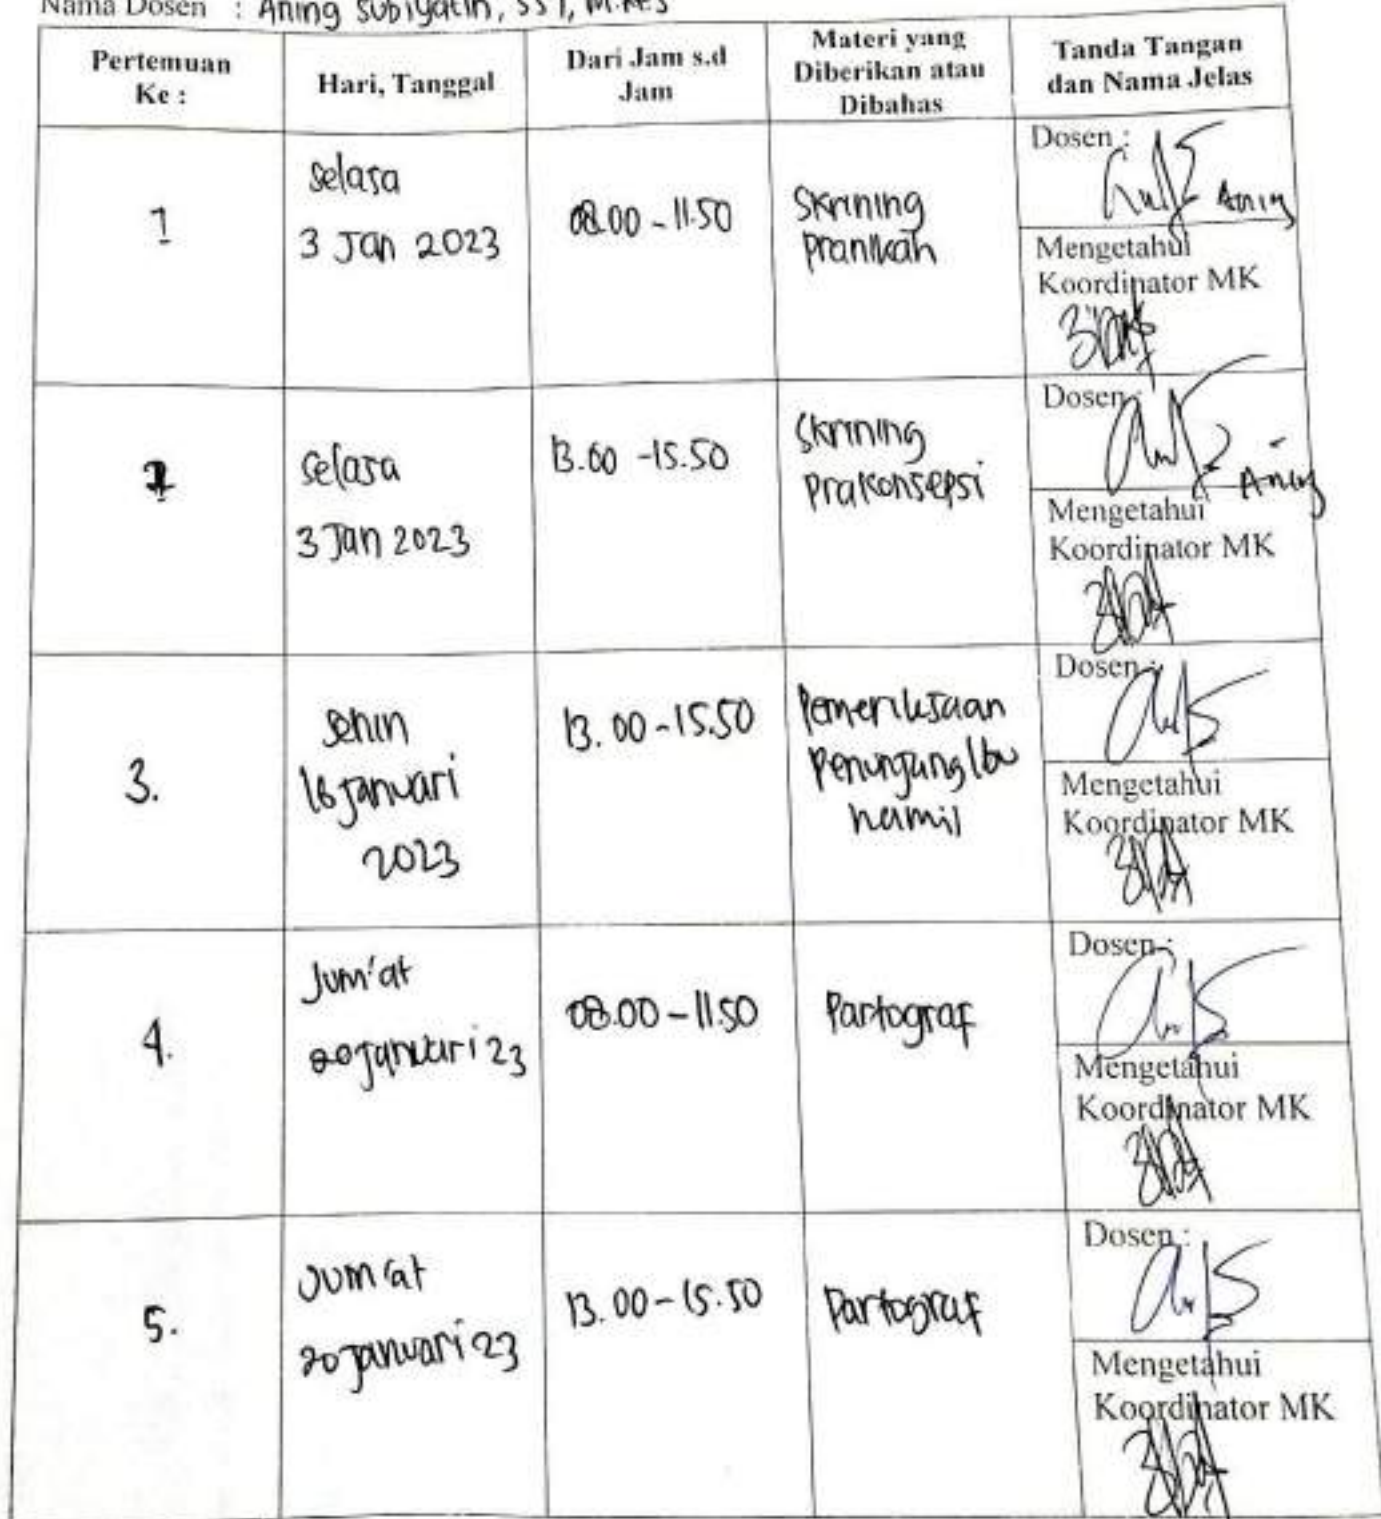 Nama Dosen : Aning Subiyatin, SST, M.Kes
Pertemuan Ke :
Hari, Tanggal
Dari Jam s.d Jam
Materi yang Diberikan atau Dibahas
Tanda Tangan dan Nama Jelas
1
Selasa
3 Jan 2023
08.00 - 11.50
Skrining
Pranikah
Dosen :
Aning
Mengetahui
Koordinator MK
2
Selasa
3 Jan 2023
13.00 - 15.50
Skrining
Prakonsepsi
Dosen :
Aning
Mengetahui
Koordinator MK
3.
Senin
16 Januari
2023
13.00 - 15.50
Pemeriksaan
Penunjang Ibu
hamil
Dosen :
Mengetahui
Koordinator MK
4.
Jum'at
20 Januari 23
08.00 - 11.50
Partograf
Dosen :
Mengetahui
Koordinator MK
5.
Jum'at
20 Januari 23
13.00 - 15.50
Partograf
Dosen :
Mengetahui
Koordinator MK